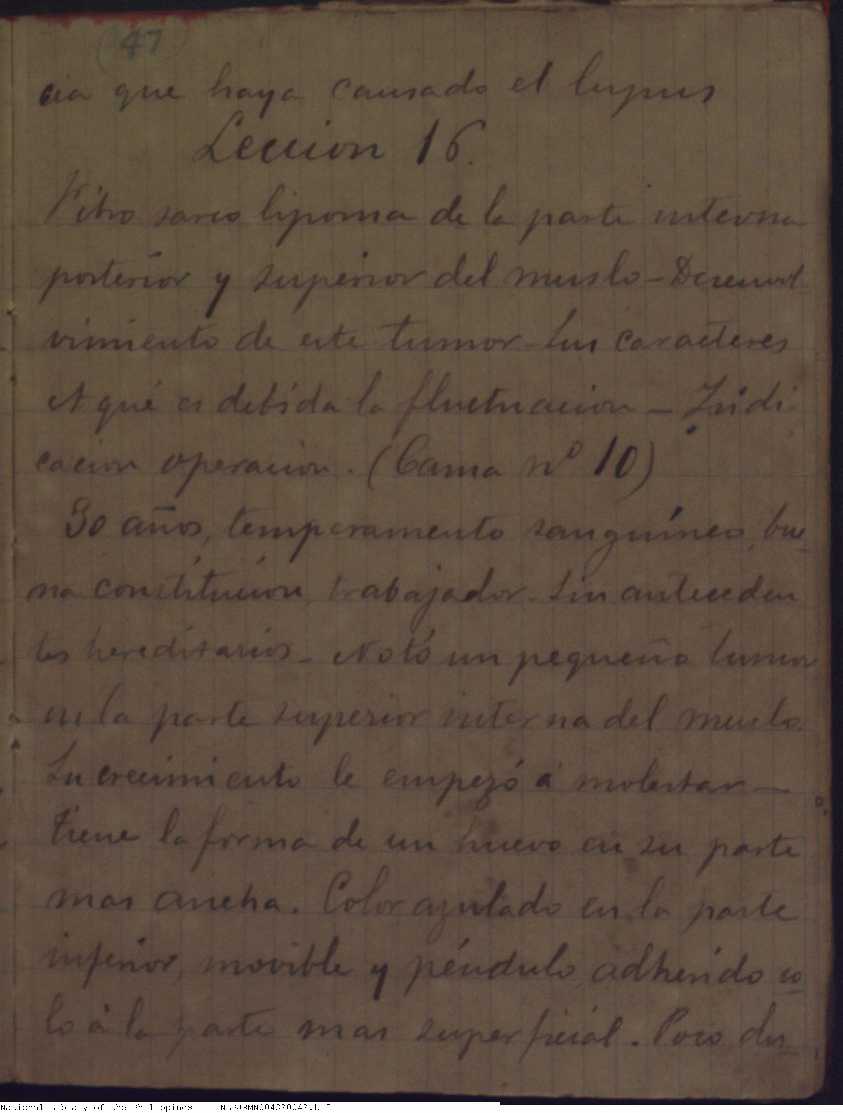 47
cia que haya causado el lupus
Leccion 16.
Fibro sarco lipoma de la parte interna
posterior y superior del muslo - Desenvol
vimiento de este tumor - Sus caracteres
A qué es debida la fluctuacion - Indi
cacion operacion. (Cama nº 10)
30 años, temperamento sanguíneo, bue
na constitucion, trabajador - Sin anteceden
tes hereditarios - Notó un pequeño tumor
en la parte superior interna del muslo.
Su crecimiento le empezó á molestar -
tiene la forma de un huevo en su parte
mas ancha. Color azulado en la parte
inferior, movible y péndulo, adherido so
lo á la parte mas superficial. Poco du
National Library of the Philippines